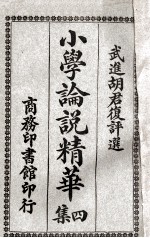 武進胡君復評選
小學論說精華
四集
商務印書館印行